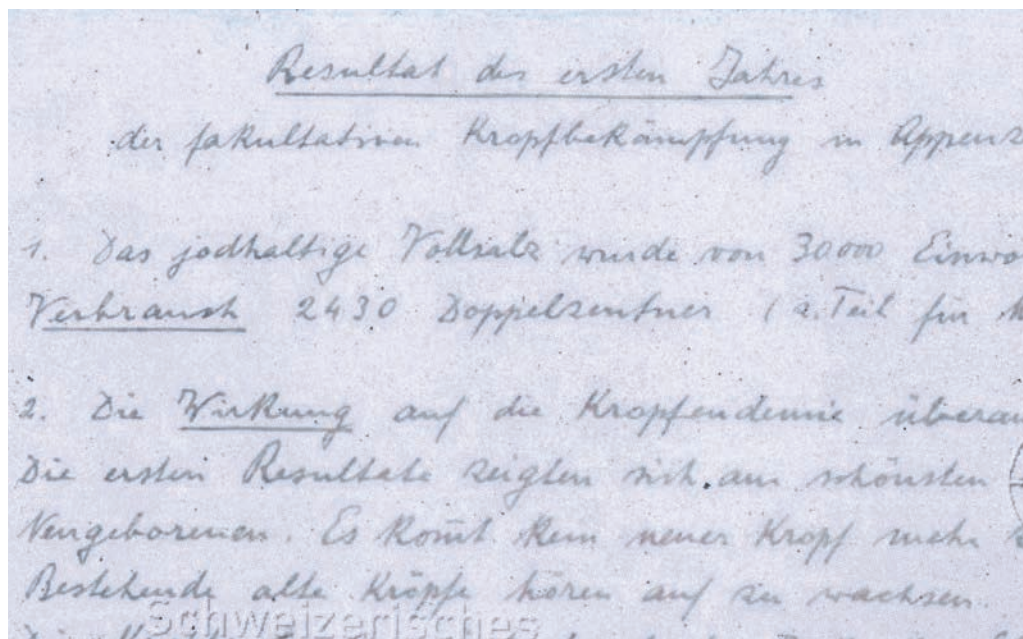 Resultat des ersten Jahres
der fakultativen Kropfbekämpfung in Appenz
1. Das jodhaltige Vollsalz wurde von 30000 Einwo
Verbrauch 2430 Doppelzentner ( z. Teil für
2. Die Wirkung auf die Kropfendemie überau
Die ersten Resultate zeigten sich am schönsten
Neugeborenen. Es kom̄t kein neuer Kropf mehr
Bestehende alte Kröpfe hören auf zu wachsen.
Schweizerisches